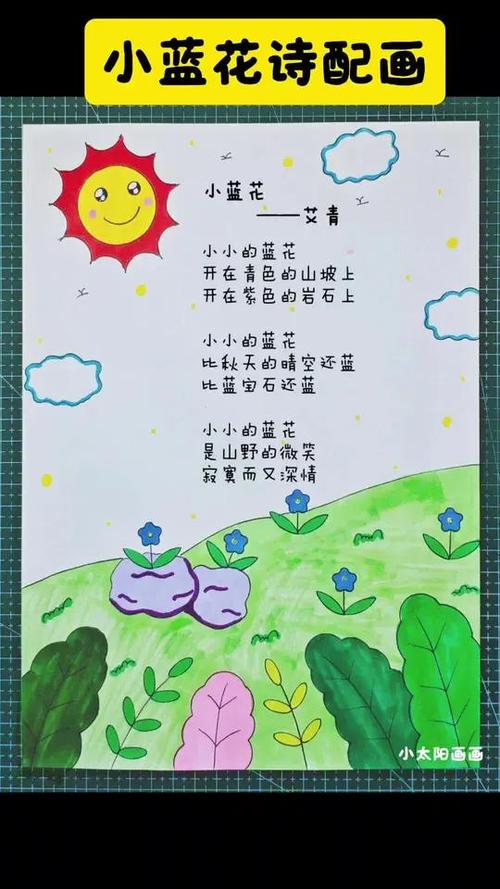 小蓝花诗配画
小蓝花
——艾青
小小的蓝花
开在青色的山坡上
开在紫色的岩石上
小小的蓝花
比秋天的晴空还蓝
比蓝宝石还蓝
小小的蓝花
是山野的微笑
寂寞而又深情
小太阳画画